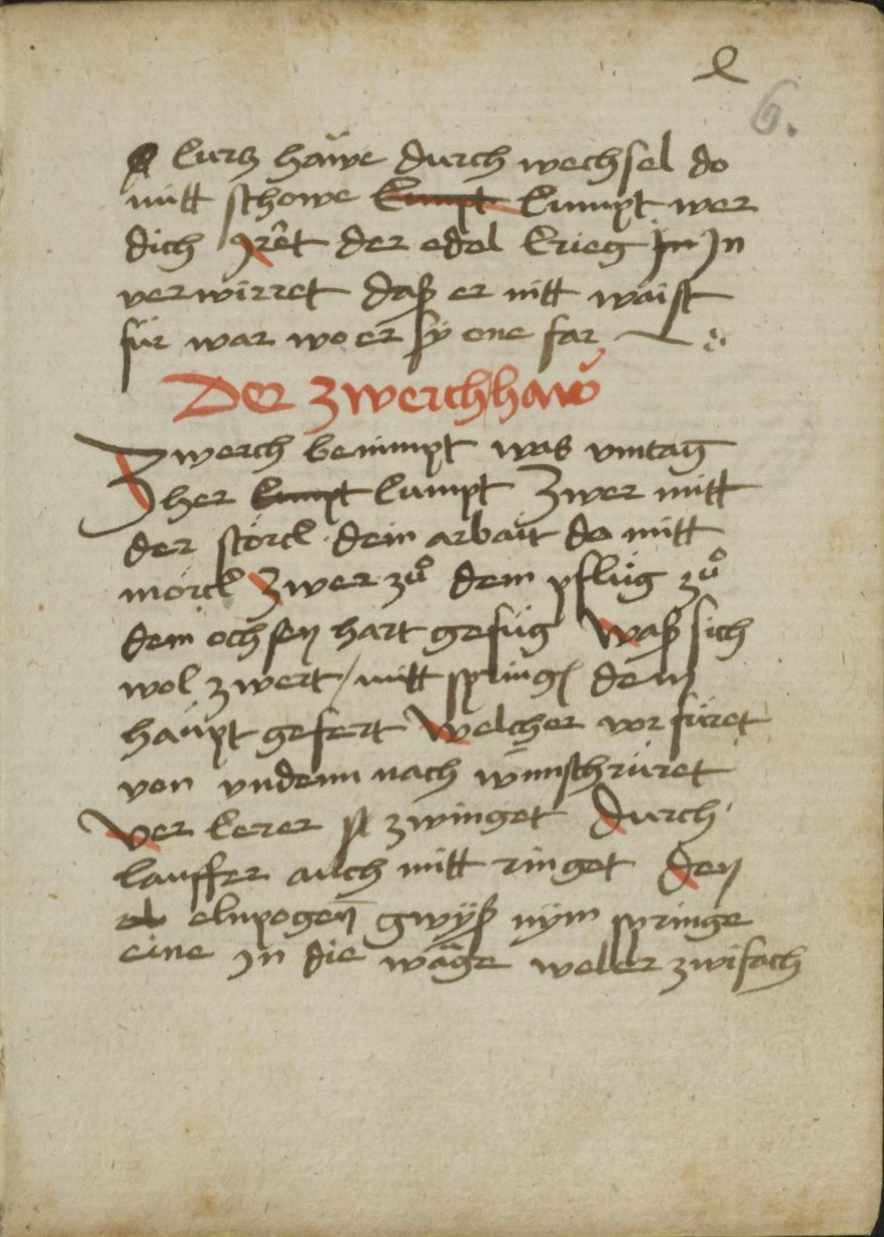 6.
kurtz häwe durch wechsel do
mitt schowe kumpt kumpt wer
dich Irret der edel krieg im In
verwirret daß er nitt waist
für war wo er sÿ one far
Der zwerchhaw
Zwerch benimpt was vmtag
her kumpt kumpt Zwer mitt
der störck dein arbait do mitt
mörck Zwer zuͦ dem pflüg zuͦ
dem ochsen hart gefüg Waß sich
wol zwert / mitt springen dem
haüpt gefert Welcher vor füret
von vndenn nach wünsch rüret
Ver kerer zwinget Durch
lauffer auch mitt ringet den
el elnpogen gwÿß nÿm springe
eine In die wäge weller zwifach